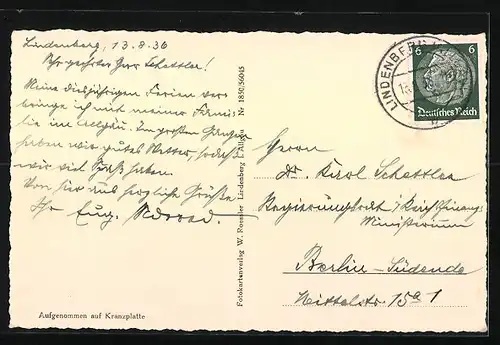 Lindenberg, 13.8.36
Sehr geehrter Herr Schettler!
Meine diesjährigen Ferien ver-
bringe ich mit meiner Fami-
lie im Allgäu. Im großen Ganzen
haben wir gutes Wetter, sodaß
wir viel Spaß haben.
Von hier aus herzliche Grüße
Ihr Eug.
Aufgenommen auf Kranzplatte
Fotokartenverlag W. Roessler Lindenberg i. Allgäu Nr 1850/56045
LINDENBERG
6 6
Deutsches Reich
Herrn
Dr. Karl Schettler
Regierungsrat i/ Reichsfinanz-
Ministerium
Berlin-Südende
Mittelstr. 15a I